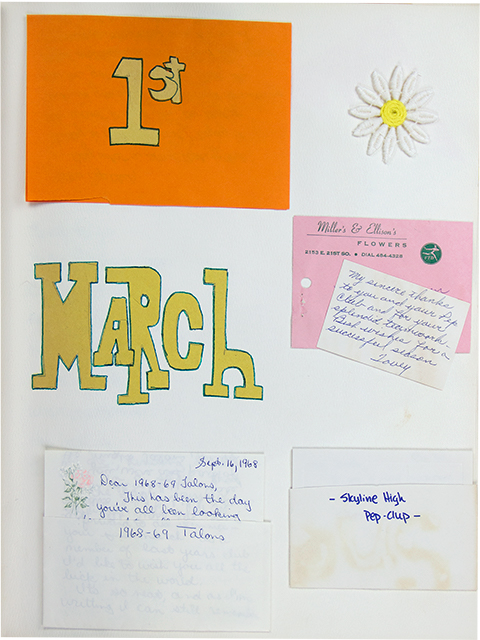 1st
Miller's & Ellison's
FLOWERS
2153 E. 21ST SO. • DIAL 484-4328
FTD
My sincere thanks
to you and your Pep
Club and for your
splendid teamwork
Best wishes for a
successful season
MARCh
Sept. 16, 1968
Dear 1968-69 Talons,
This has been the day
you've all been looking
1968-69 Talons
- Skyline High
Pep-Clup -